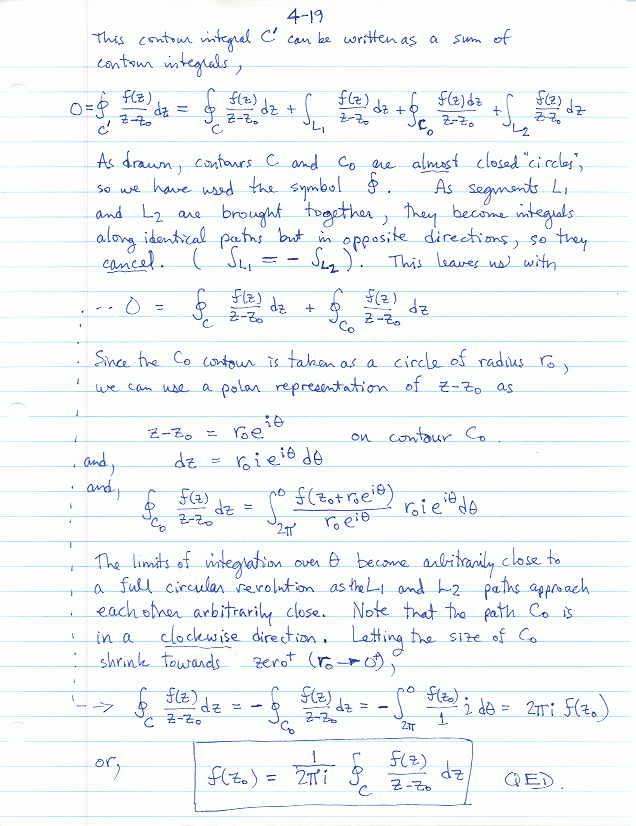 4-19
This contour integral C' can be written as a sum of
contour integrals,
0 = ∮_C' f(z)/(z-z₀) dz = ∮_C f(z)/(z-z₀) dz + ∫_L₁ f(z)/(z-z₀) dz + ∮_C₀ f(z)dz/(z-z₀) + ∫_L₂ f(z)/(z-z₀) dz
As drawn, contours C and C₀ are almost closed "circles",
so we have used the symbol ∮. As segments L₁
and L₂ are brought together, they become integrals
along identical paths but in opposite directions, so they
cancel. ( ∫_L₁ = - ∫_L₂ ). This leaves us with
... 0 = ∮_C f(z)/(z-z₀) dz + ∮_C₀ f(z)/(z-z₀) dz
Since the C₀ contour is taken as a circle of radius r₀,
we can use a polar representation of z-z₀ as
z-z₀ = r₀e^{iθ} on contour C₀.
and, dz = r₀ i e^{iθ} dθ
and, ∮_C₀ f(z)/(z-z₀) dz = ∫_{2π}^{0} f(z₀+r₀e^{iθ})/(r₀e^{iθ}) r₀ i e^{iθ} dθ
The limits of integration over θ become arbitrarily close to
a full circular revolution as the L₁ and L₂ paths approach
each other arbitrarily close. Note that the path C₀ is
in a clockwise direction. Letting the size of C₀
shrink towards zero⁺ (r₀ → 0⁺),
→ ∮_C f(z)/(z-z₀) dz = - ∮_C₀ f(z)/(z-z₀) dz = - ∫_{2π}^{0} f(z₀)/1 i dθ = 2πi f(z₀)
or, f(z₀) = 1/(2πi) ∮_C f(z)/(z-z₀) dz QED.